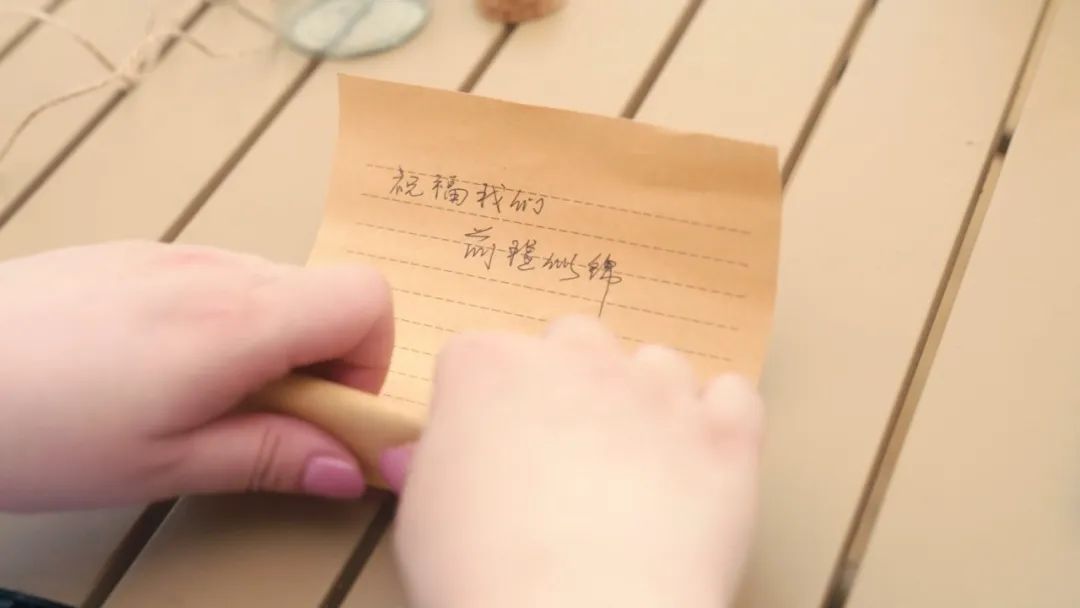 祝福我们
前程似锦